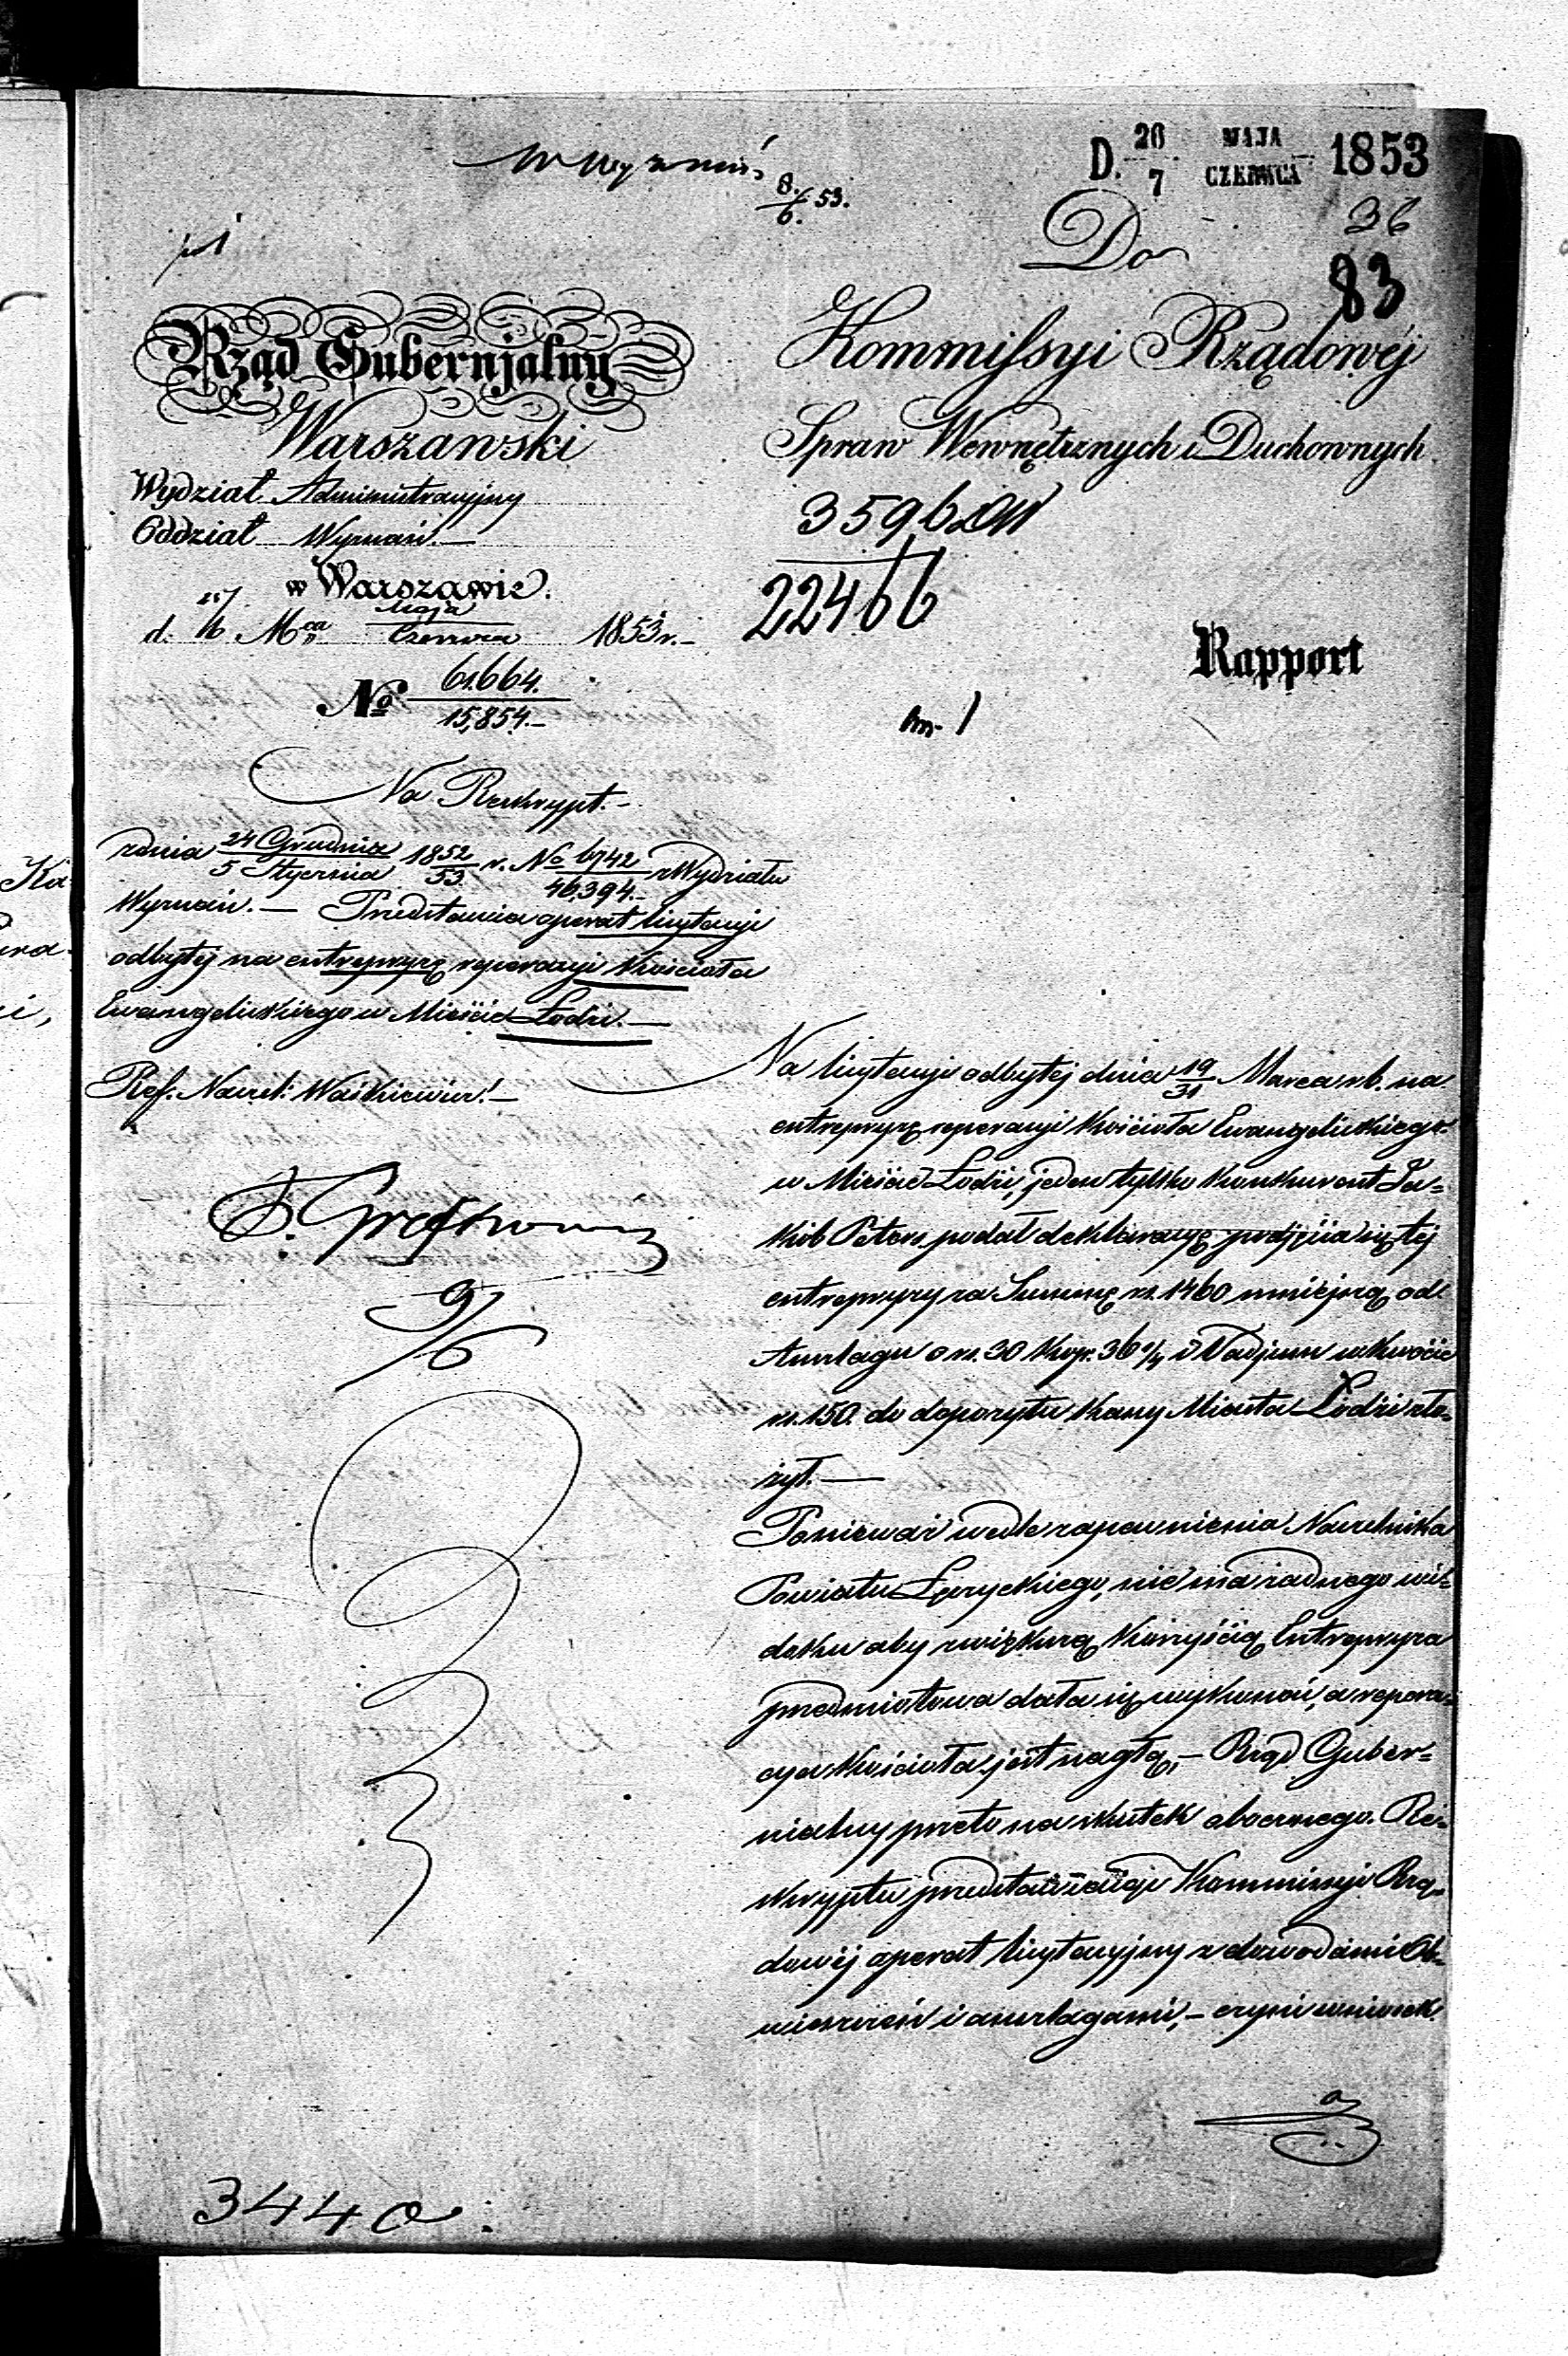 W Wyznań
8./6. 53.
D. 26/7 MAJA/CZERWCA 1853
36
83
Do
Kommissyi Rządowéj
Spraw Wewnętrznych i Duchownych
3596
22466
Rapport
Rząd Gubernjalny
Warszawski
Wydział Administracyjny
Oddział Wyznań.—
w Warszawie.
d. Mca Maja/Czerwca 1853 r.—
No 61.664./15,854.—
Na Reskrypt.—
z dnia 24 Grudnia/5 Stycznia 1852/53 r. No 6742/46,394.— z Wydziału
Wyznań.— Przedstawia operat licytacyi
odbytéj na entrepryzę reperacyi Kościoła
Ewangelickiego w Mieście Łodzi.—
Ref. Naczel: Waśkiewicz.—
9/6
Na licytacyi odbytéj dnia 19/31 Marca r.b. na
entrepryzę reperacyi Kościoła Ewangelickiego
w Mieście Łodzi, jeden tylko konkurent Ja=
kób Peters podał deklaracyę podjęcia się téj
entrepryzy za Summę rs. 1460 mniejszą od
Anszlagu o rs. 30 kop. 36 1/4 i Vadjum w kwocie
rs. 150. do depozytu Kassy Miasta Łodzi zło=
żył.—
Ponieważ wedle zapewnienia Naczelnika
Powiatu Łęczyckiego, nie ma żadnego wi=
doku aby z większą korzyścią Entrepryza
przedmiotowa dała się wykonać, a repera=
cya Kościoła jest nagłą,— Rząd Guber=
nialny przeto na skutek obocznego Re=
skryptu przedstawiając Kommissyi Rzą=
dowéj operat licytacyjny z dowodami Ob=
wieszczeń i anszlagami,— czyni wniosek
3440